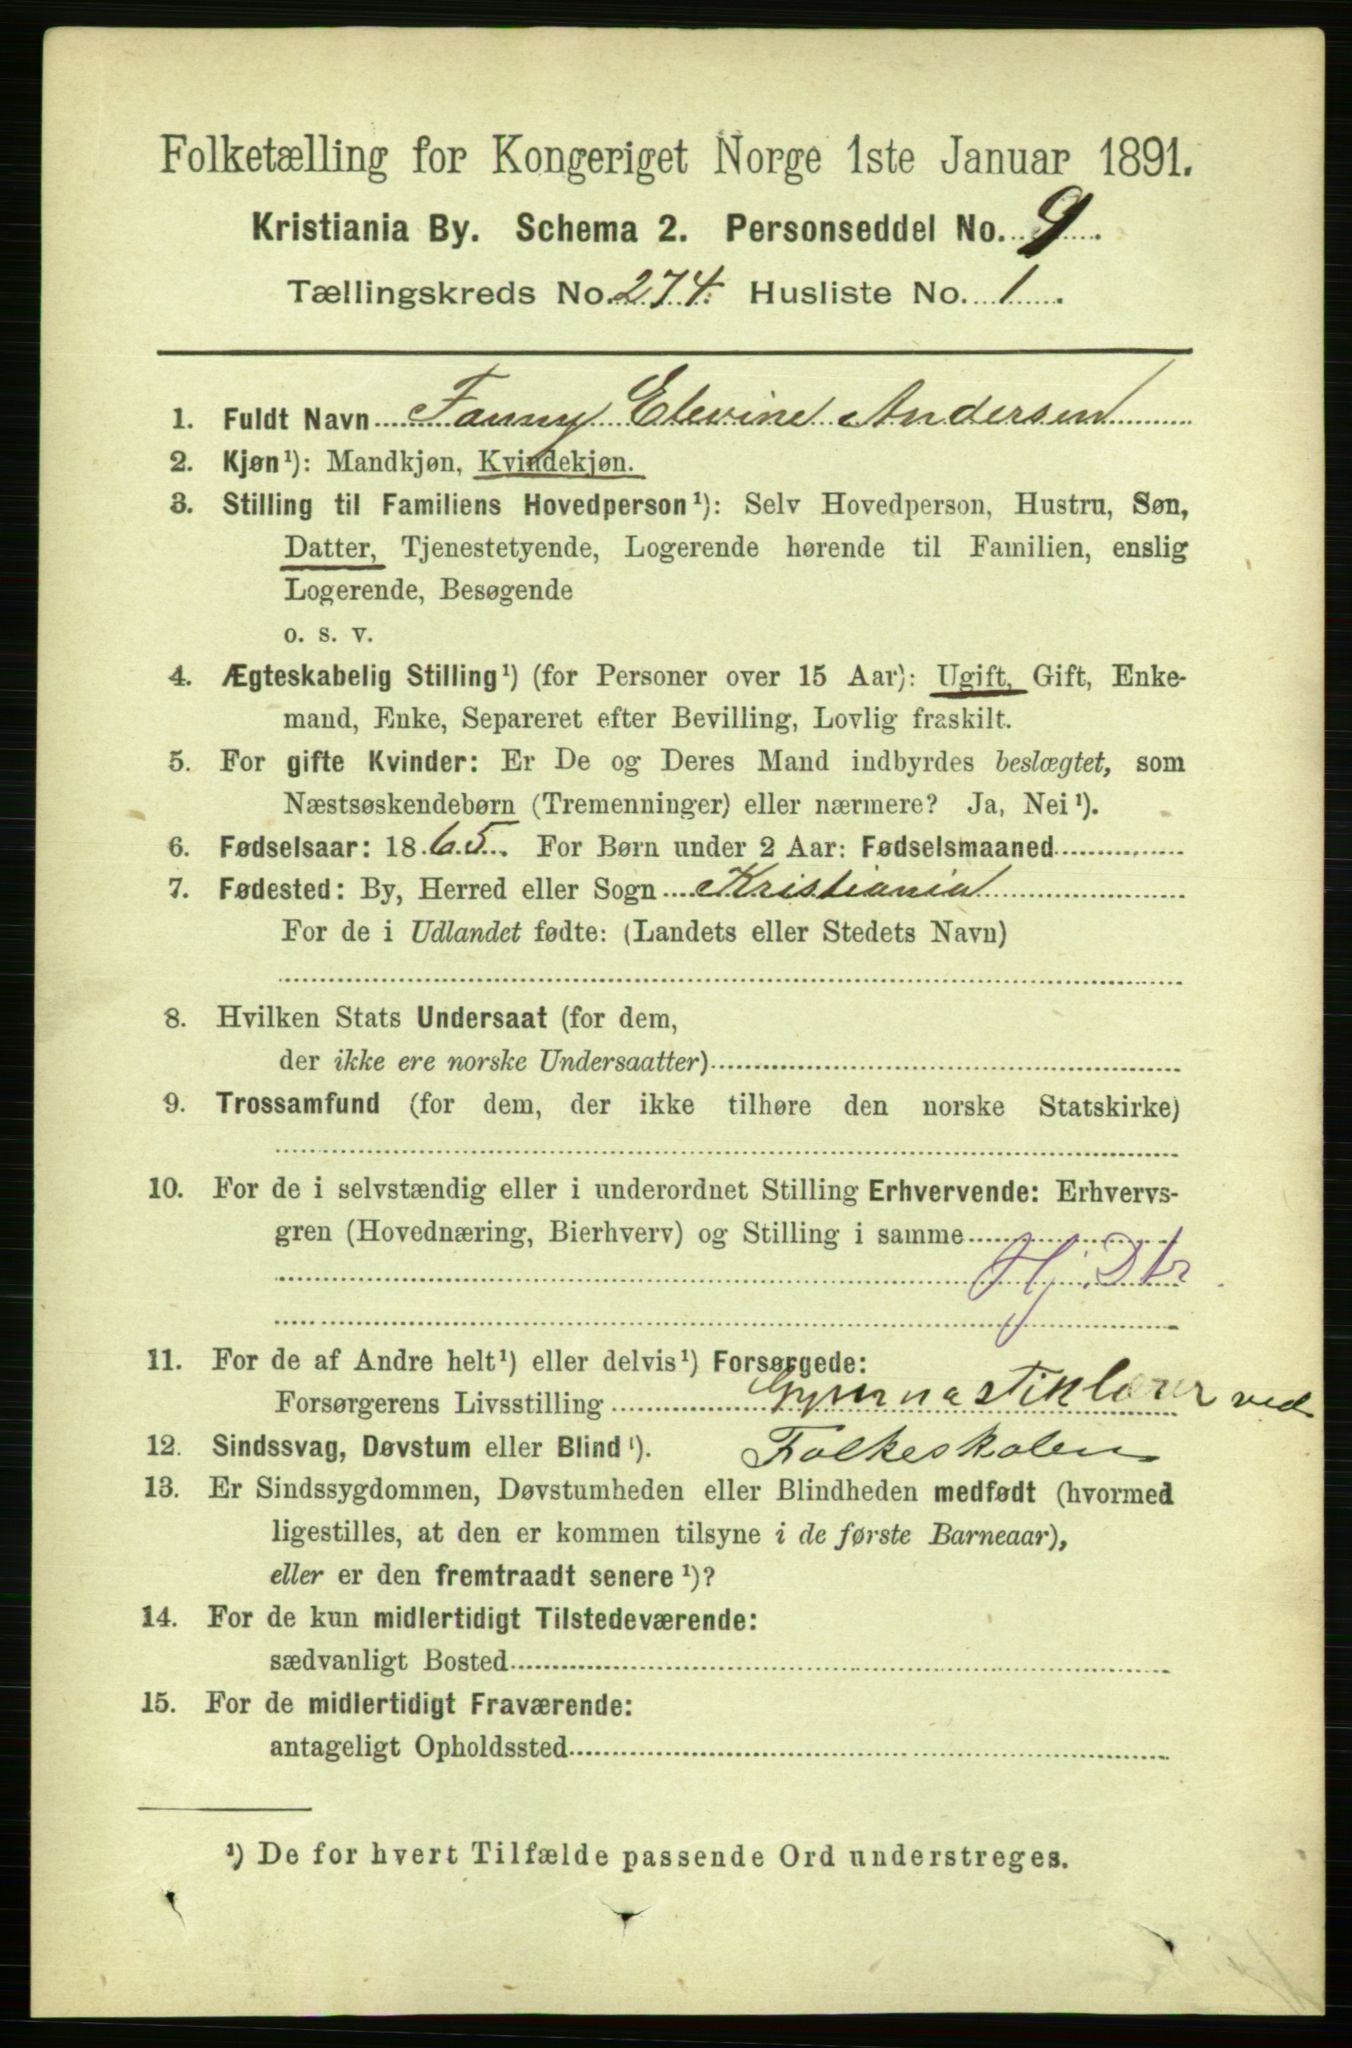 Folketælling for Kongeriget Norge 1ste Januar 1891.
Kristiania By. Schema 2. Personseddel No. 9.
Tællingskreds No. 274. Husliste No. 1.
1. Fuldt Navn Fanny Elevine Andersen
2. Kjøn¹): Mandkjøn, Kvindekjøn.
3. Stilling til Familiens Hovedperson¹): Selv Hovedperson, Hustru, Søn,
Datter, Tjenestetyende, Logerende hørende til Familien, enslig
Logerende, Besøgende
o. s. v.
4. Ægteskabelig Stilling¹) (for Personer over 15 Aar): Ugift, Gift, Enke-
mand, Enke, Separeret efter Bevilling, Lovlig fraskilt.
5. For gifte Kvinder: Er De og Deres Mand indbyrdes beslægtet, som
Næstsøskendebørn (Tremenninger) eller nærmere? Ja, Nei¹).
6. Fødselsaar: 1865. For Børn under 2 Aar: Fødselsmaaned
7. Fødested: By, Herred eller Sogn Kristiania
For de i Udlandet fødte: (Landets eller Stedets Navn)
8. Hvilken Stats Undersaat (for dem,
der ikke ere norske Undersaatter)
9. Trossamfund (for dem, der ikke tilhøre den norske Statskirke)
10. For de i selvstændig eller i underordnet Stilling Erhvervende: Erhvervs-
gren (Hovednæring, Bierhverv) og Stilling i samme
Hj. Dtr
11. For de af Andre helt¹) eller delvis¹) Forsørgede:
Forsørgerens Livsstilling Gymnastiklærer ved
12. Sindssvag, Døvstum eller Blind¹). Folkeskolen
13. Er Sindssygdommen, Døvstumheden eller Blindheden medfødt (hvormed
ligestilles, at den er kommen tilsyne i de første Barneaar),
eller er den fremtraadt senere¹)?
14. For de kun midlertidigt Tilstedeværende:
sædvanligt Bosted
15. For de midlertidigt Fraværende:
antageligt Opholdssted
¹) De for hvert Tilfælde passende Ord understreges.